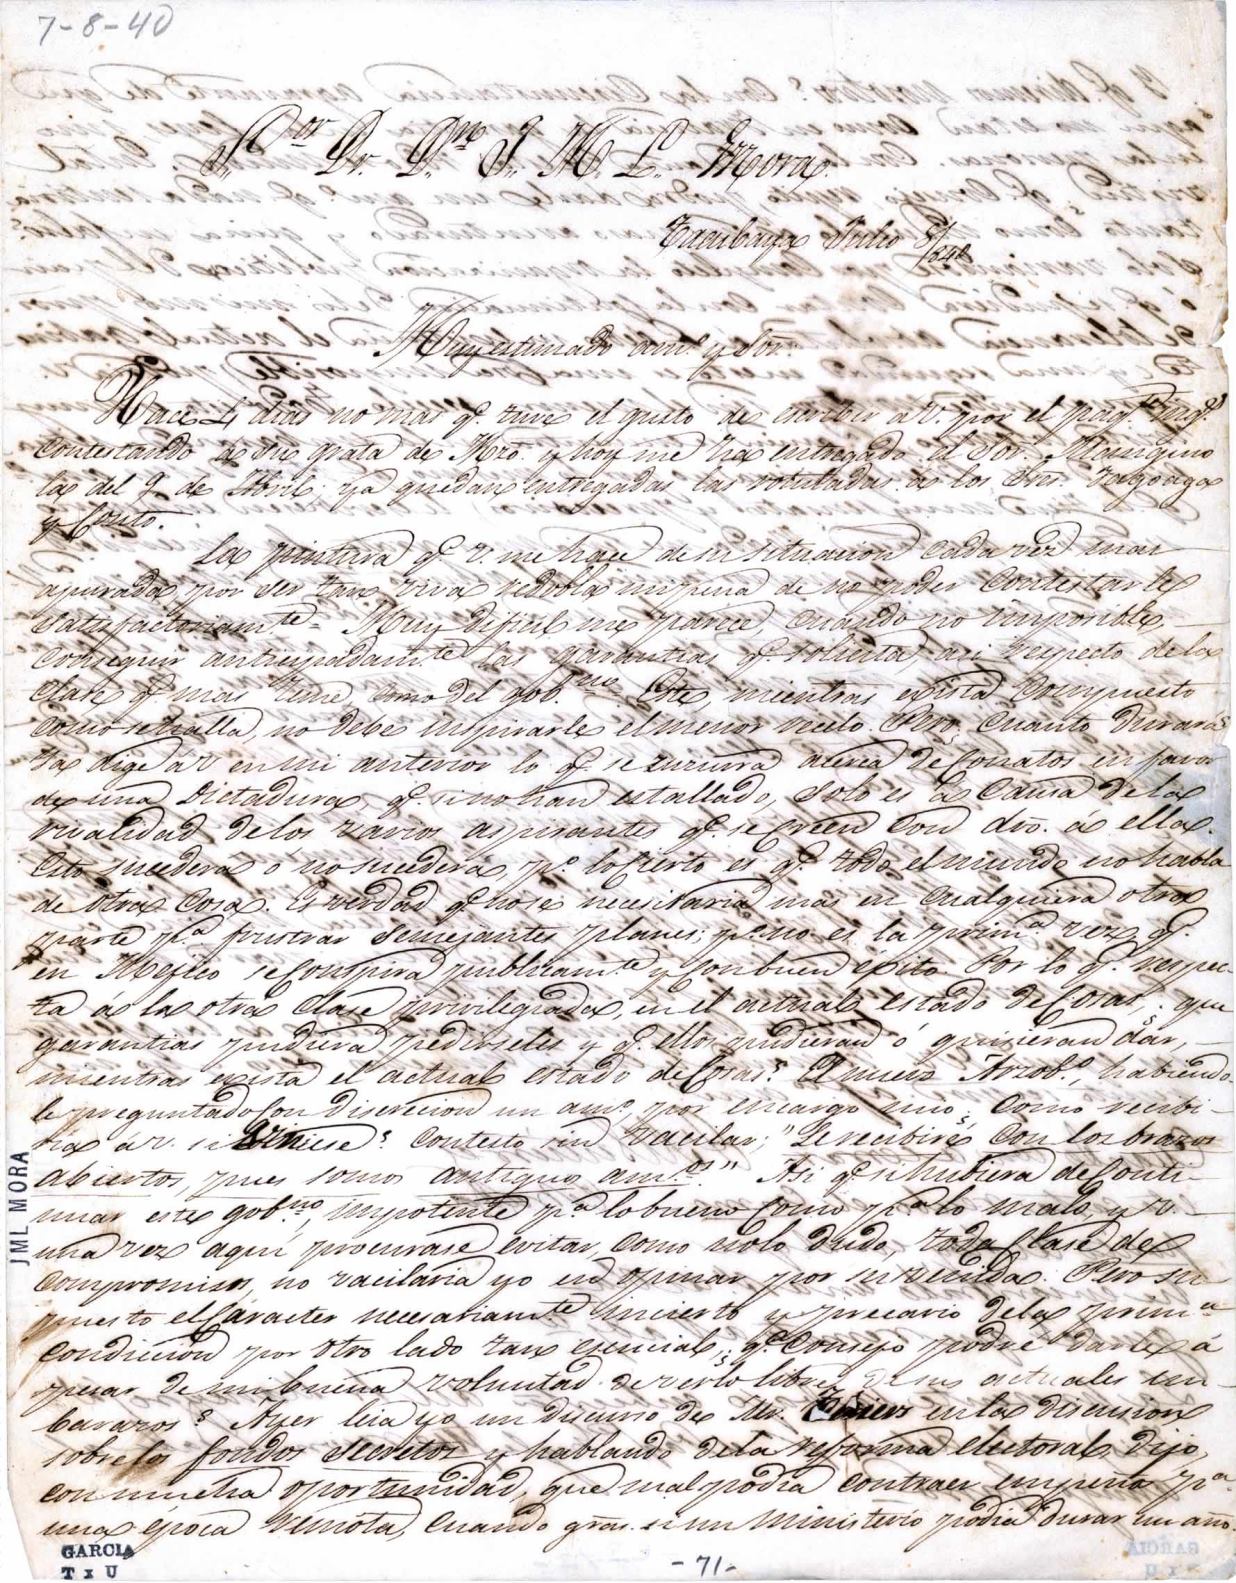 7-8-40
Sor. Dr. Dn. J. M. L. Mora.
Tacubaya Julio 8/840
Muy estimado amo. y Sor.
Hace 4 dias no mas q. tuve el gusto de escribir a V. por el paqte. ings.
contestando a su grata de Mzo. y hoy me ha entregado el Sor. Mangino
la del 9 de Abril; ya quedan entregadas las rotuladas a los Sres. Fagoaga
y Couto.
La pintura q. V. me hace de su situacion cada vez mas
apurada por ser tan viva redobla mi pena de no poder contestarle
satisfactoriamte. Muy dificil me parece, cuando no imposible
conseguir anticipadamte. las garantias q. solicita, asi respecto de la
clase q. mas teme, como del gobno. Este, mientras exista compuesto
como se halla, no debe inspirarle el menor recelo. Pero ¿cuanto durará?
Ya dige á V. en mi anterior lo q. se susurra acerca de conatos en favor
de una Dictadura, q. si no han estallado, solo es á causa de la
rivalidad de los varios aspirantes q. se creen con dro. á ella.
Esto sucederá ó no sucederá, po. lo cierto es q. todo el mundo no habla
de otra cosa. Es verdad q. no se necesitaria mas en cualquiera otra
parte pa. frustrar semejantes planes; po. no es la prima. vez q.
en Mejico se conspira publicamte. y con buen exito. Por lo q. respec-
ta á la otra clase privilegiada, en el actual estado de cosas, ¿que
garantias pudiera pedirseles y q. ellos pudieran ó quisieran dar,
mientras exista el actual estado de cosas? El nuevo Arzobo., habiendo-
le preguntado con discrecion un amo. por encargo mio ¿como recibi-
ria á V. si viniese? contestó sin vacilar; "Le recibiré con los brazos
abiertos, pues somos antiguos amos." Asi q. si hubiera de conti-
nuar este gobno., impotente pa. lo bueno como pa. lo malo, y V.
una vez aqui procurase evitar, como no lo dudo, toda clase de
compromisos, no vacilaria yo en opinar por su venida. Pero su-
puesto el caracter necesariamte. incierto y precario de la prima.
condicion por otro lado tan esencial, ¿q. consejo podré darle á
pesar de mi buena voluntad de verlo libre de sus actuales em-
barazos? Ayer leia yo un discurso de Mr. Thiers en la discusion
sobre los fondos secretos y hablando de la reforma electoral, dijo,
con mucha oportunidad, que mal podia contraer empeño pa.
una época remota, cuando gras. si un ministerio podia durar un año.
JML MORA
GARCIA
-71-